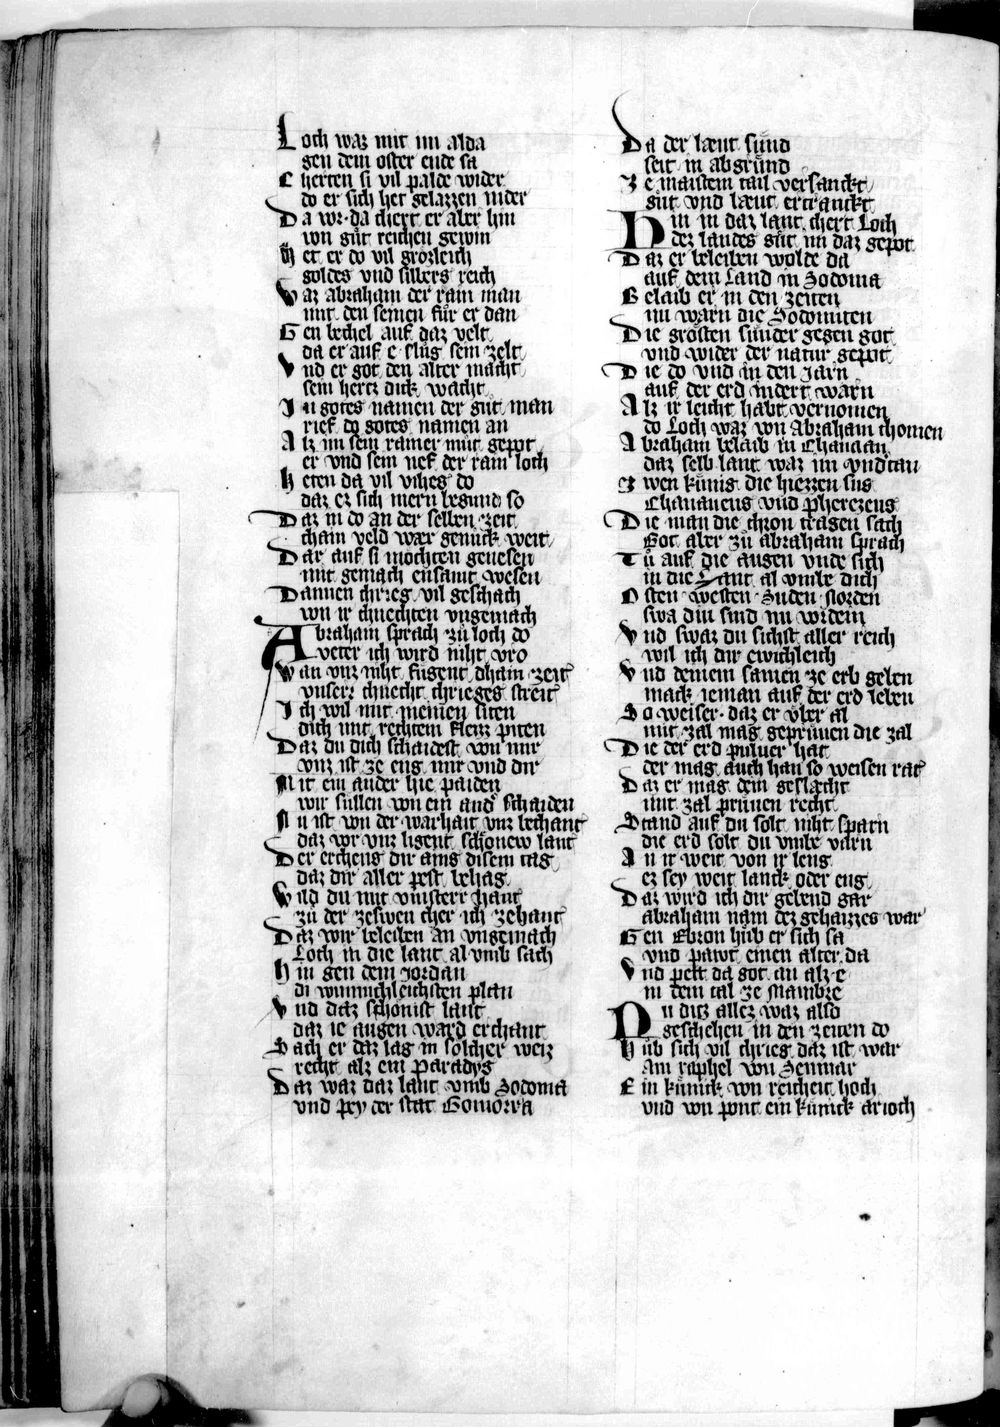 Loch waz mit im alda
gen dem oster ende sa
Cherten si vil palde wider
do er sich het gelazzen nider
Da vor da chert er aber hin
von gůt reichen gewin
Het er do vil grozleich
goldes vnd silbers reich
Waz abraham der rain man
mit den seinen fůr er dan
Gen bethel auf daz velt
da er auf e slůg sein zelt
Vnd er got den alter macht
sein hertz dick wacht
In gotes namen der gůt man
rief do gotes namen an
Alz im sein rainer můt gepot
er vnd sein nef der rain loth
Heten da vil vihes do
daz ez sich mern begund so
Daz in do an der selben zeit
cham veld waer genůck weit
Dar auf si mochten genesen
mit gemach ensamt wesen
Dannen chrieg vil geschach
von ir chnechten vngemach
Abraham sprach zů loch do
veter ich wird niht vro
Wan vnz niht fůgent dhain zeit
vnserr chnecht chrieges streit
Ich wil mit meinen siten
dich mit rechtem fleizz piten
Daz du dich schaidest von mir
vnz ist ze eng mir vnd dir
Mit ein ander hie paiden
wir sullen von ein and schaiden
Nu ist von der warhait vnz bechant
daz vor vnz ligent schonew lant
Der ercheus dir ains disem tag
daz dir aller pest behag
Wild du mit vinsterr hant
zů der zeswen cher ich zehant
Daz wir beleiben an vngemach
Loch in die lant al vmb sach
Hin gen dem Jordan
di winnichleichsten plan
Vnd daz schonist lant
daz ie augen ward erchant
Sach er daz lag in solcher weiz
recht alz ein paradys
Daz waz daz lant vmb Zodoma
vnd pey der stat Gomorra
Da der laeut sund
seit in abgrůnd
Ze maistem tail versanckt
gůt vnd laeut ertranckt
Hin in daz lant chert Loch
dez landes gůt im daz gepot
Daz er beleiben wolde da
auf dem Land in Zodoma
Belaib er in den zeiten
nu warn die Sodomiten
Die grosten sunder gegen got
vnd wider der natur gepot
Die do vnd in den Jarn
auf der erd indert warn
Alz ir leicht habt vernomen
do Loch waz von Abraham chomen
Abraham belaib in Chanaan
daz selb lant waz im vndtan
Zwen kůnig die hiezzen sus
Chananeus vnd pherezeus
Die man die chron tragen sach
Got aber zů abraham sprach
Tů auf die augen vnde sich
in die Lant al vmbe dich
Osten Westen Suden Norden
swa diu sind nu worden
Vnd swaz du sichst aller reich
wil ich dir ewichleich
Vnd deinem samen ze erb geben
mack ieman auf der erd leben
So weiser daz er vber al
mit zal mag geprůuen die zal
Die der erd puluer hat
der mag auch han so weisen rat
Daz er mag dem geslaecht
mit zal průuen recht
Stand auf du solt niht sparn
die erd solt du vmbe varn
An ir weit von ir leng
ez sey weit lanck oder eng
Daz wird ich dir gebend gar
abraham nam dez gehaizzes war
Gen Ebron hůb er sich sa
vnd pawt einen alter da
Vnd pett da got an alz e
in dem tal ze Mambre
Nu ditz allez waz also
geschehen in den zeiten do
Hůb sich vil chrieg daz ist war
Am raphel von Sennnar
Ein kůnick von reicheit hoch
vnd von pont ein kůnick arioch